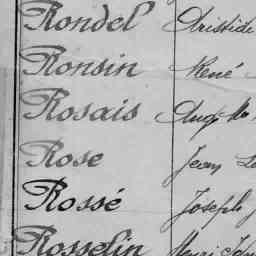 Rondel Aristide
Ronsin René
Rosais Aug
Rose Jean
Rossé Joseph
Rosselin Henri